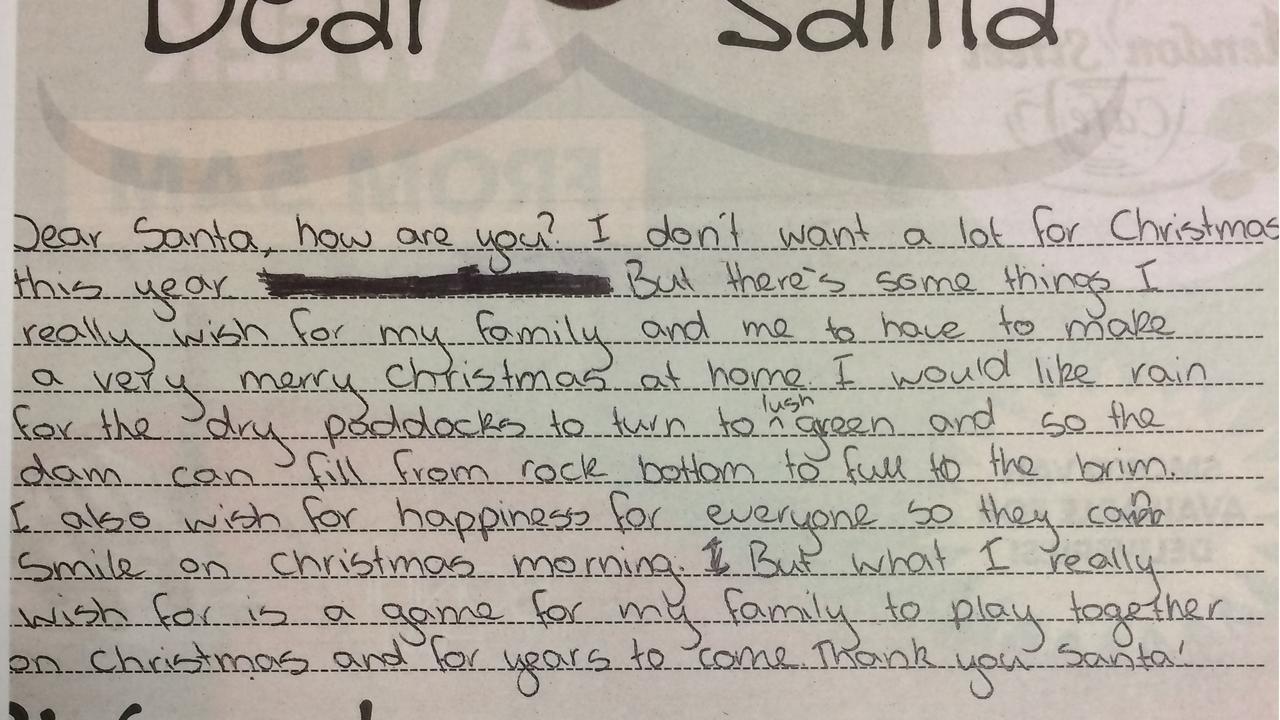 Dear Santa
Dear Santa, how are you? I don't want a lot for Christmas
this year But there's some things I
really wish for my family and me to have to make
a very merry Christmas at home. I would like rain
for the dry paddocks to turn to lush green and so the
dam can fill from rock bottom to full to the brim.
I also wish for happiness for everyone so they can
smile on christmas morning. But what I really
wish for is a game for my family to play together
on christmas and for years to come. Thank you Santa!